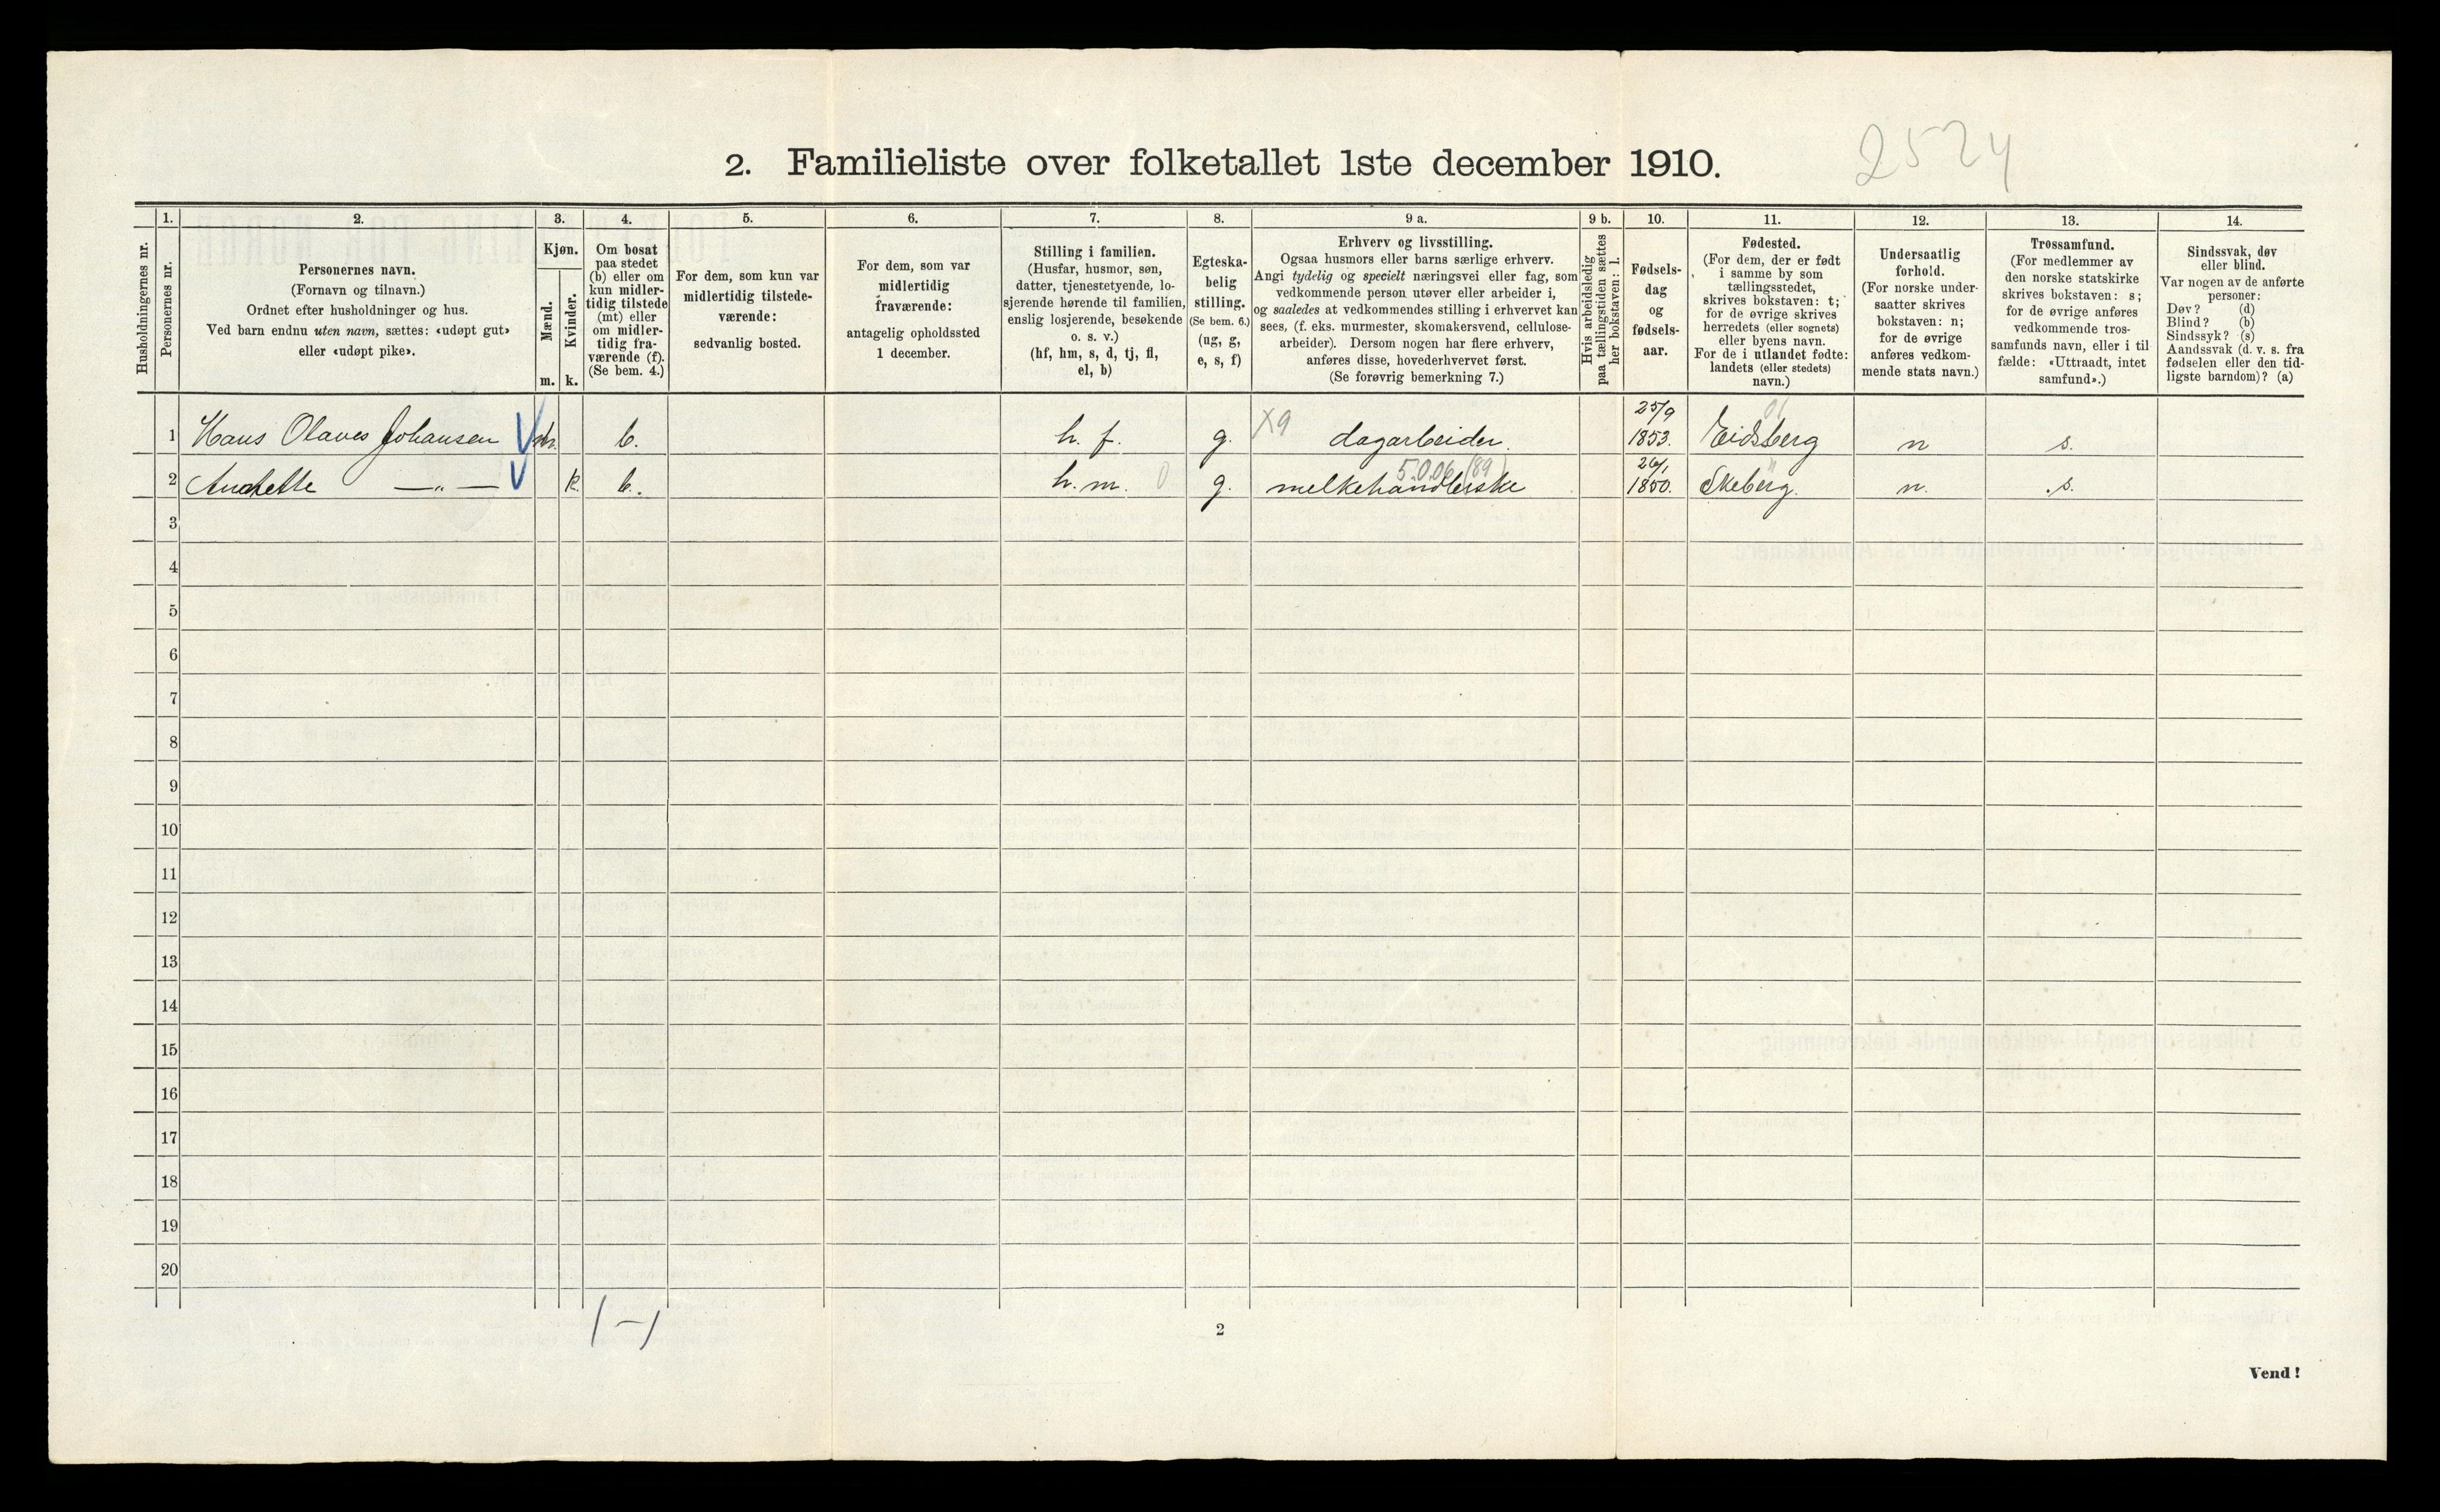 2524
2. Familieliste over folketallet 1ste december 1910.
Husholdningernes nr.
1.
Personernes nr.
2.
Personernes navn.
(Fornavn og tilnavn.)
Ordnet efter husholdninger og hus.
Ved barn endnu uten navn, sættes: «udøpt gut»
eller «udøpt pike».
3.
Kjøn.
Mænd.
Kvinder.
m. k.
4.
Om bosat
paa stedet
(b) eller om
kun midler-
tidig tilstede
(mt) eller
om midler-
tidig fra-
værende (f).
(Se bem. 4.)
5.
For dem, som kun var
midlertidig tilstede-
værende:
sedvanlig bosted.
6.
For dem, som var
midlertidig
fraværende:
antagelig opholdssted
1 december.
7.
Stilling i familien.
(Husfar, husmor, søn,
datter, tjenestetyende, lo-
sjerende hørende til familien,
enslig losjerende, besøkende
o. s. v.)
(hf, hm, s, d, tj, fl,
el, b)
8.
Egteska-
belig
stilling.
(Se bem. 6.)
(ug, g,
e, s, f)
9 a.
Erhverv og livsstilling.
Ogsaa husmors eller barns særlige erhverv.
Angi tydelig og specielt næringsvei eller fag, som
vedkommende person utøver eller arbeider i,
og saaledes at vedkommendes stilling i erhvervet kan
sees, (f. eks. murmester, skomakersvend, cellulose-
arbeider). Dersom nogen har flere erhverv,
anføres disse, hovederhvervet først.
(Se forøvrig bemerkning 7.)
9 b.
Hvis arbeidsledig
paa tællingstiden sættes
her bokstaven: l.
10.
Fødsels-
dag
og
fødsels-
aar.
11.
Fødested.
(For dem, der er født
i samme by som
tællingsstedet,
skrives bokstaven: t;
for de øvrige skrives
herredets (eller sognets)
eller byens navn.
For de i utlandet fødte:
landets (eller stedets)
navn.)
12.
Undersaatlig
forhold.
(For norske under-
saatter skrives
bokstaven: n;
for de øvrige
anføres vedkom-
mende stats navn.)
13.
Trossamfund.
(For medlemmer av
den norske statskirke
skrives bokstaven: s;
for de øvrige anføres
vedkommende tros-
samfunds navn, eller i til
fælde: «Uttraadt, intet
samfund».)
14.
Sindssvak, døv
eller blind.
Var nogen av de anførte
personer:
Døv? (d)
Blind? (b)
Sindssyk? (s)
Aandssvak (d. v. s. fra
fødselen eller den tid-
ligste barndom)? (a)
1 Hans Olaves Johansen m. b. h. f. g. X9 dagarbeider. 25/9 1853. 01 Eidsberg n s.
2 —„— k b. h. m. 0 g. 5.006 (89) melkehandlerske 26/1 1850. " Skeberg. n. s.
3
4
5
6
7
8
9
10
11
12
13
14
15
16
17
18
19
20
1 – 1
2
Vend!